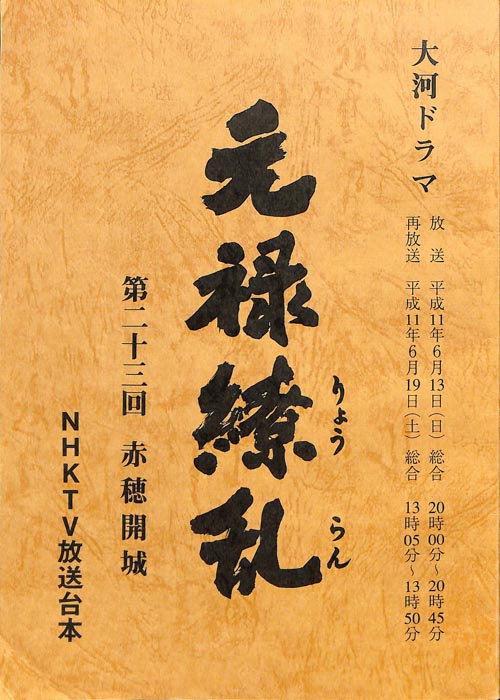 大河ドラマ
放送 平成11年6月13日(日) 総合 20時00分~20時45分
再放送 平成11年6月19日(土) 総合 13時05分~13時50分
元禄繚乱
りょう らん
第二十三回 赤穂開城
NHKTV放送台本